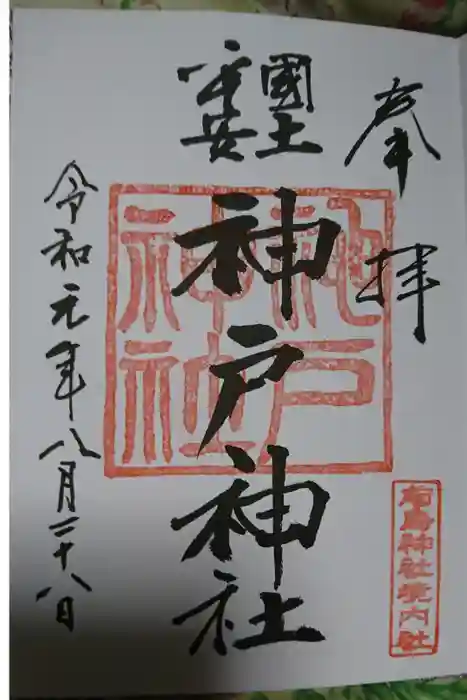 奉拝
國土
平安
神戸神社
神戸
神社
令和元年八月二十八日
神社境内社